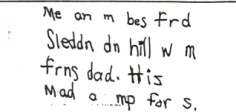 Me an m bes frd
Sleddn dn hill w m
frns dad. His
Mad a mp for s.